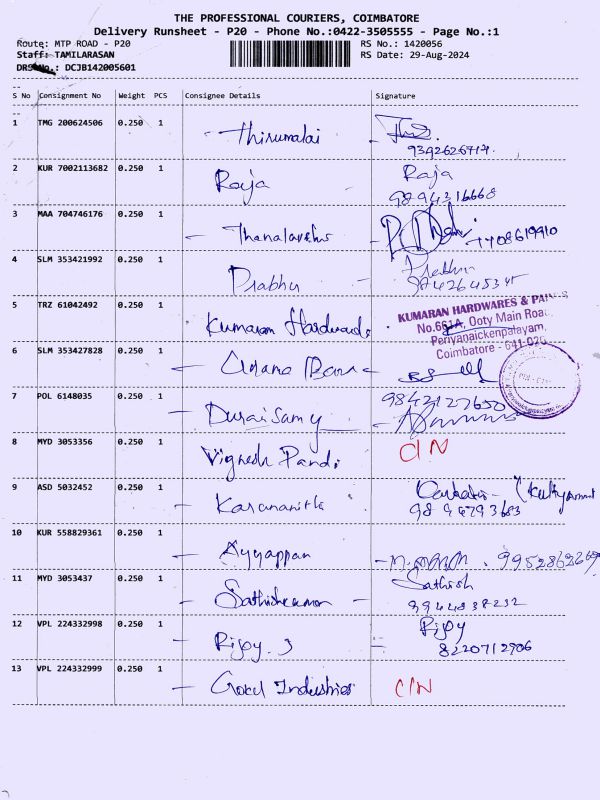 THE PROFESSIONAL COURIERS, COIMBATORE
Delivery Runsheet - P20 - Phone No.:0422-3505555 - Page No.:1
Route: MTP ROAD - P20 RS No.: 1420056
Staff: TAMILARASAN RS Date: 29-Aug-2024
DRS No.: DCJB142005601
S No Consignment No Weight PCS Consignee Details Signature
1 TMG 200624506 0.250 1 Thirumalai
2 KUR 7002113682 0.250 1 Raja Raja
9894316668
3 MAA 704746176 0.250 1 7708619910
4 SLM 353421992 0.250 1 Prabhu Prabhu
5 TRZ 61042492 0.250 1 Kumaran Hardwards
KUMARAN HARDWARES &
No.661A, Ooty Main Road,
Periyanaickenpalayam,
Coimbatore - 641 020
6 SLM 353427828 0.250 1
7 POL 6148035 0.250 1 Duraisamy 9842127650
8 MYD 3053356 0.250 1 Vignesh Pandi C/N
9 ASD 5032452 0.250 1
10 KUR 558829361 0.250 1 Ayyappan
11 MYD 3053437 0.250 1 Sathish
9944838232
12 VPL 224332998 0.250 1 Rijoy. J Rijoy
8220712906
13 VPL 224332999 0.250 1 Gokul Industries C/N